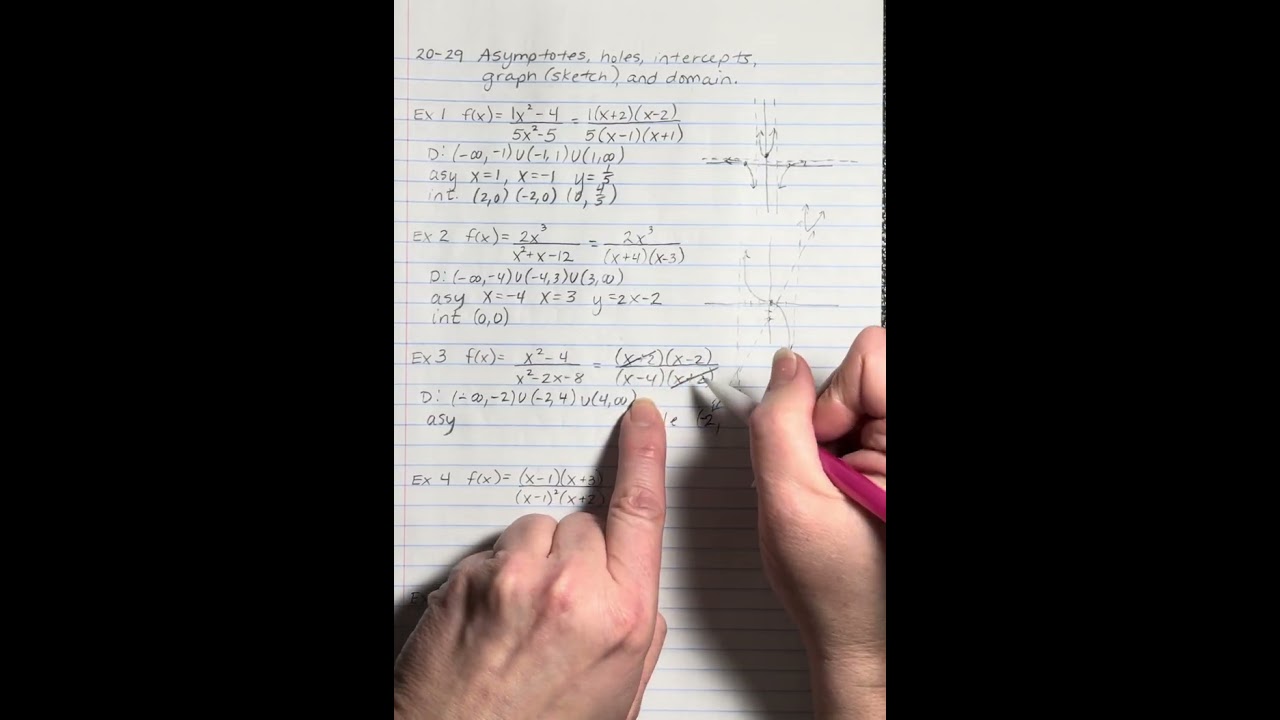 20-29 Asymptotes, holes, intercepts,
graph (sketch), and domain.
Ex 1 f(x) = 1x² - 4 / 5x² - 5 = 1(x+2)(x-2) / 5(x-1)(x+1)
D: (-∞, -1) ∪ (-1, 1) ∪ (1, ∞)
asy x = 1, x = -1 y = 1/5
int. (2,0) (-2,0) (0, 4/5)
Ex 2 f(x) = 2x³ / x² + x - 12 = 2x³ / (x+4)(x-3)
D: (-∞, -4) ∪ (-4, 3) ∪ (3, ∞)
asy x = -4 x = 3 y = 2x - 2
int (0,0)
Ex 3 f(x) = x² - 4 / x² - 2x - 8 = (x+2)(x-2) / (x-4)(x+2)
D: (-∞, -2) ∪ (-2, 4) ∪ (4, ∞)
asy (-2,
Ex 4 f(x) = (x-1)(x+3) / (x-1)²(x+2)